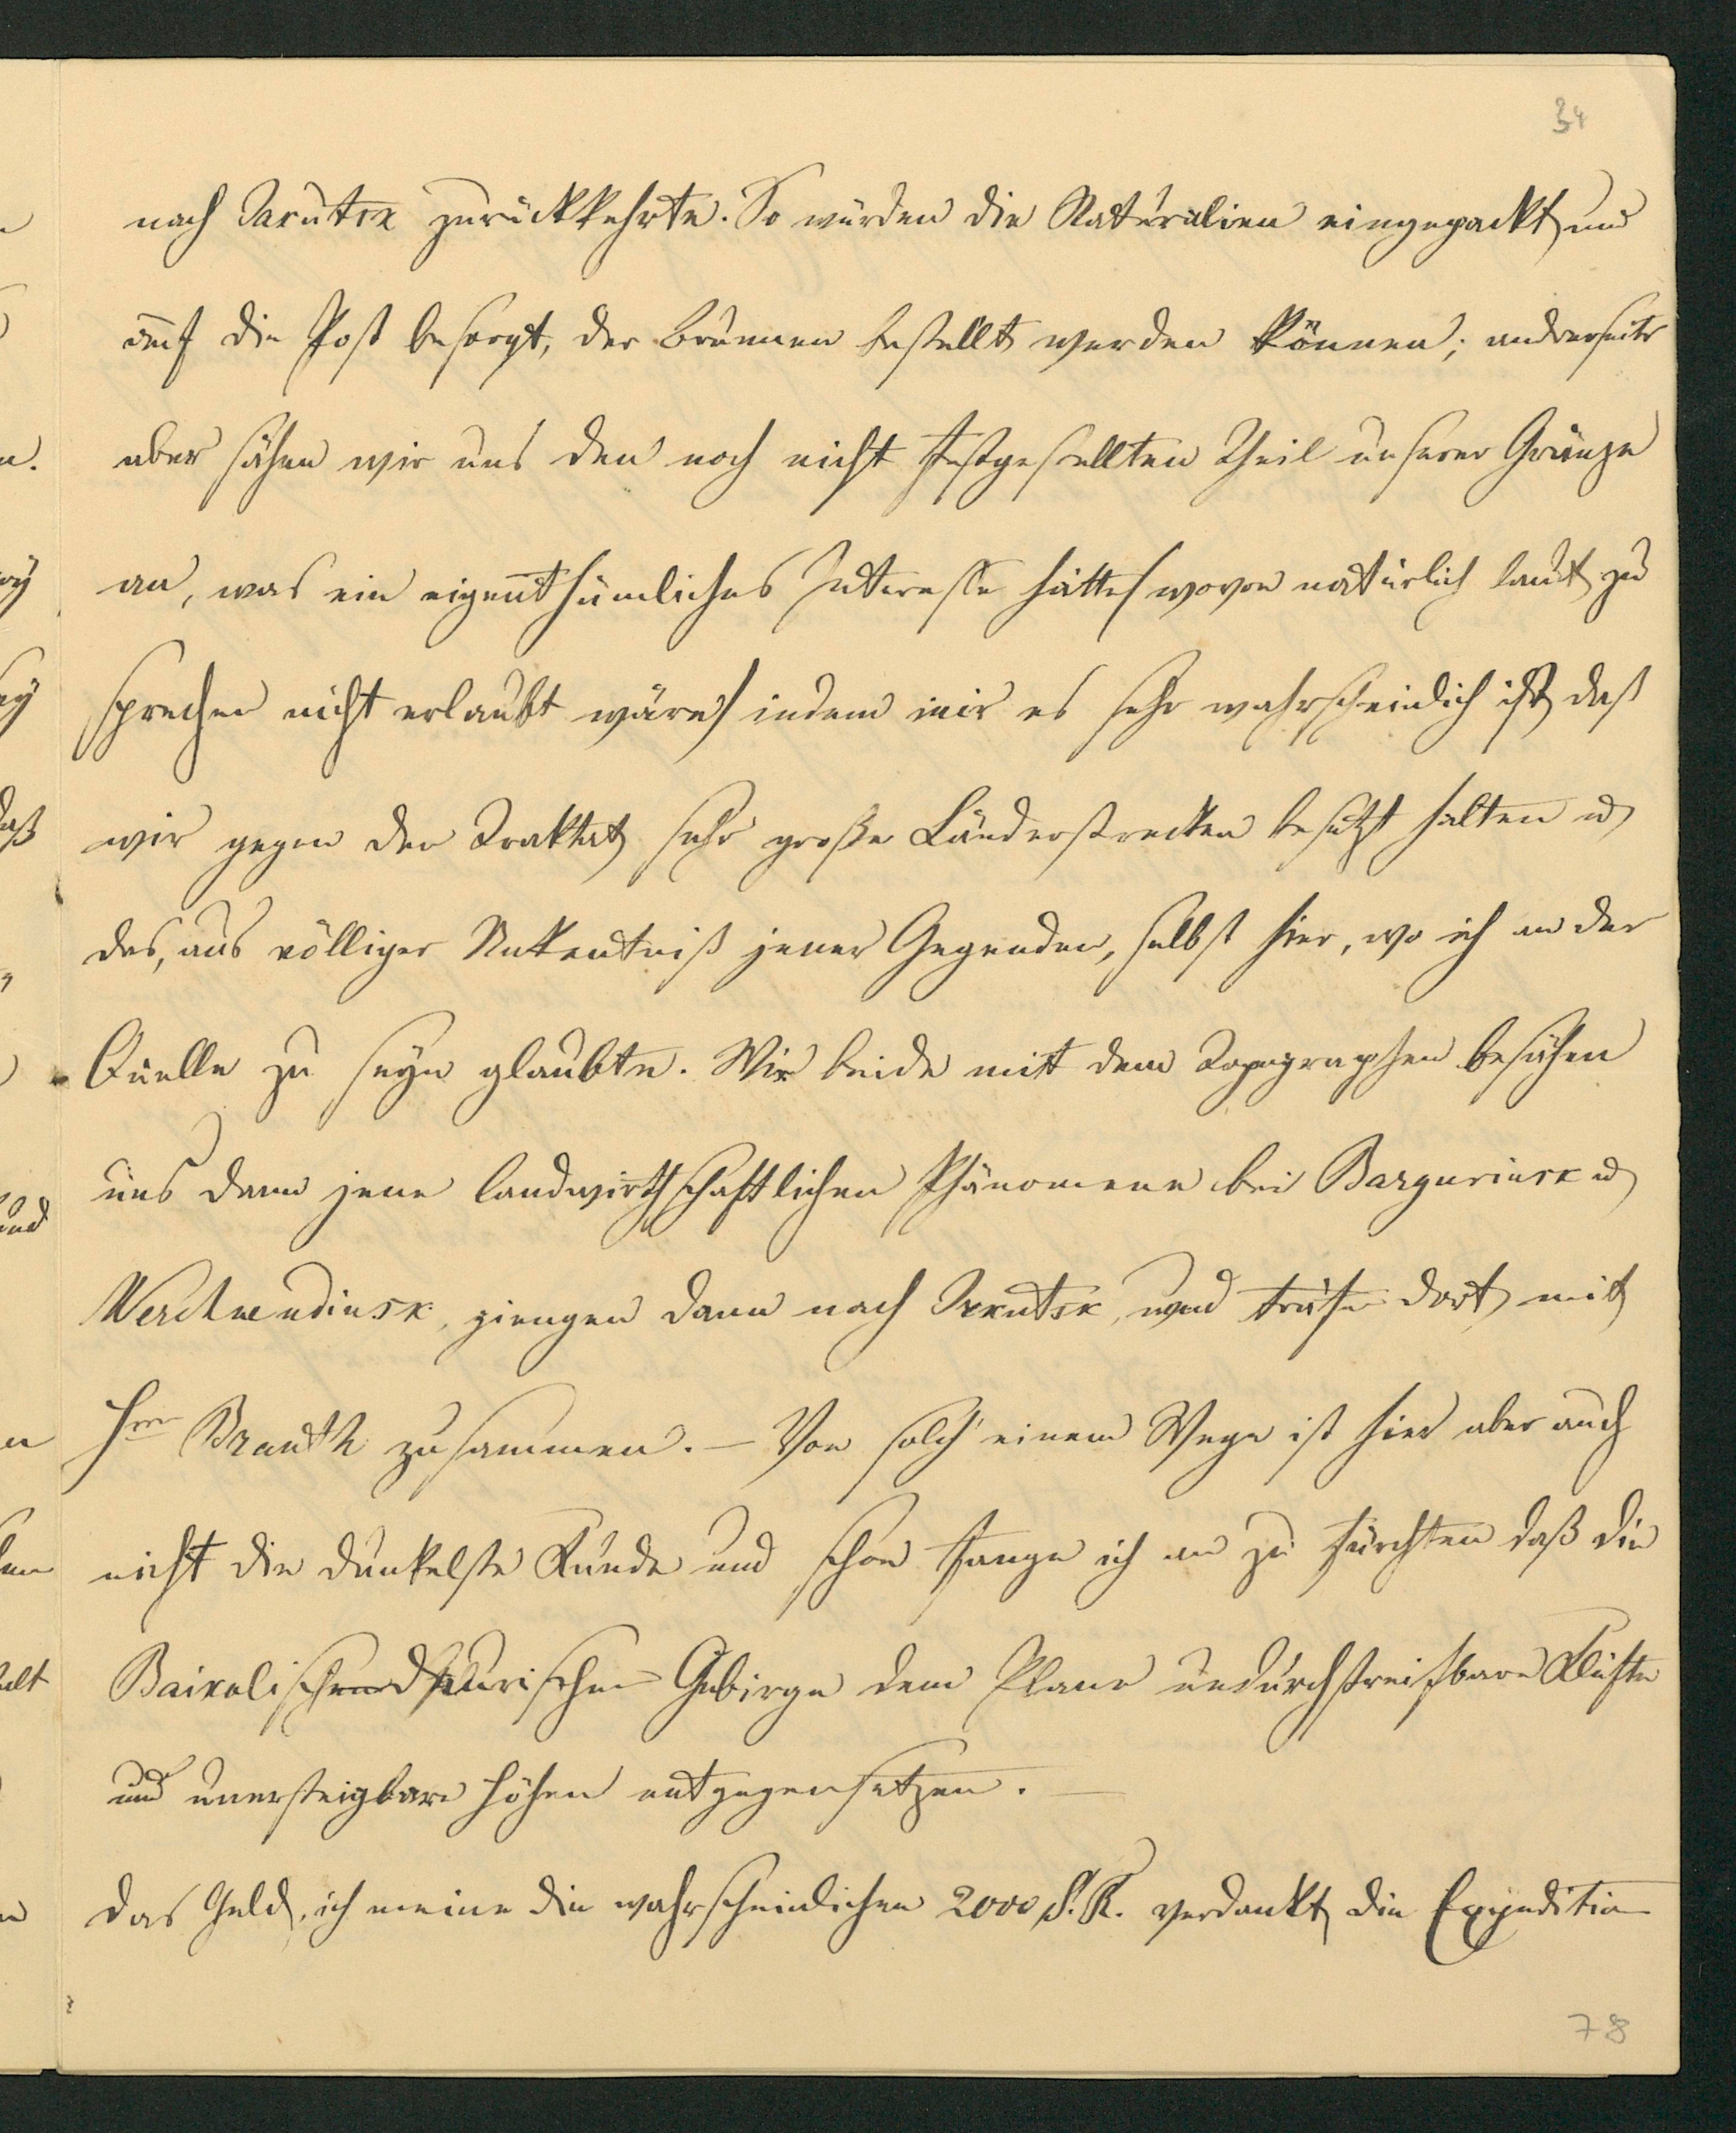 34
nach Jakutsk zurückkehrte. So würden die Naturalien eingepackt und
auf die Post besorgt, der Brunnen bestellt werden können; andrerseits
aber sähen wir uns den noch nicht festgestellten Theil unserer Gränze
an, was ein eigenthümliches Interesse hätte (wovon natürlich laut zu
sprechen nicht erlaubt wäre) indem mir es sehr wahrscheinlich ist, daß
wir gegen den Traktat sehr große Länderstrecken besetzt halten u
das, aus völliger Unkentniß jener Gegenden, selbst hier, wo ich an der
Quelle zu seyn glaubte. Wir beide mit dem Topographen besähen
uns dann jene landwirthschaftlichen Phänomene bei Bargusinsk u
Werchneudinsk, giengen dann nach Irkutsk, und träfen dort mit
Hrn Branth zusammen. – Von solch' einem Wege ist hier aber auch
nicht die dunkelste Kunde und schon fange ich an zu fürchten daß die
Baikalisch Daurischen Gebirge dem Plane undurchstreifbare Klüfte
und unersteigbare Höhen entgegensetzen. –
Das Geld, ich meine die wahrscheinlichen 2000 S. R. verdankt die Expedition
78